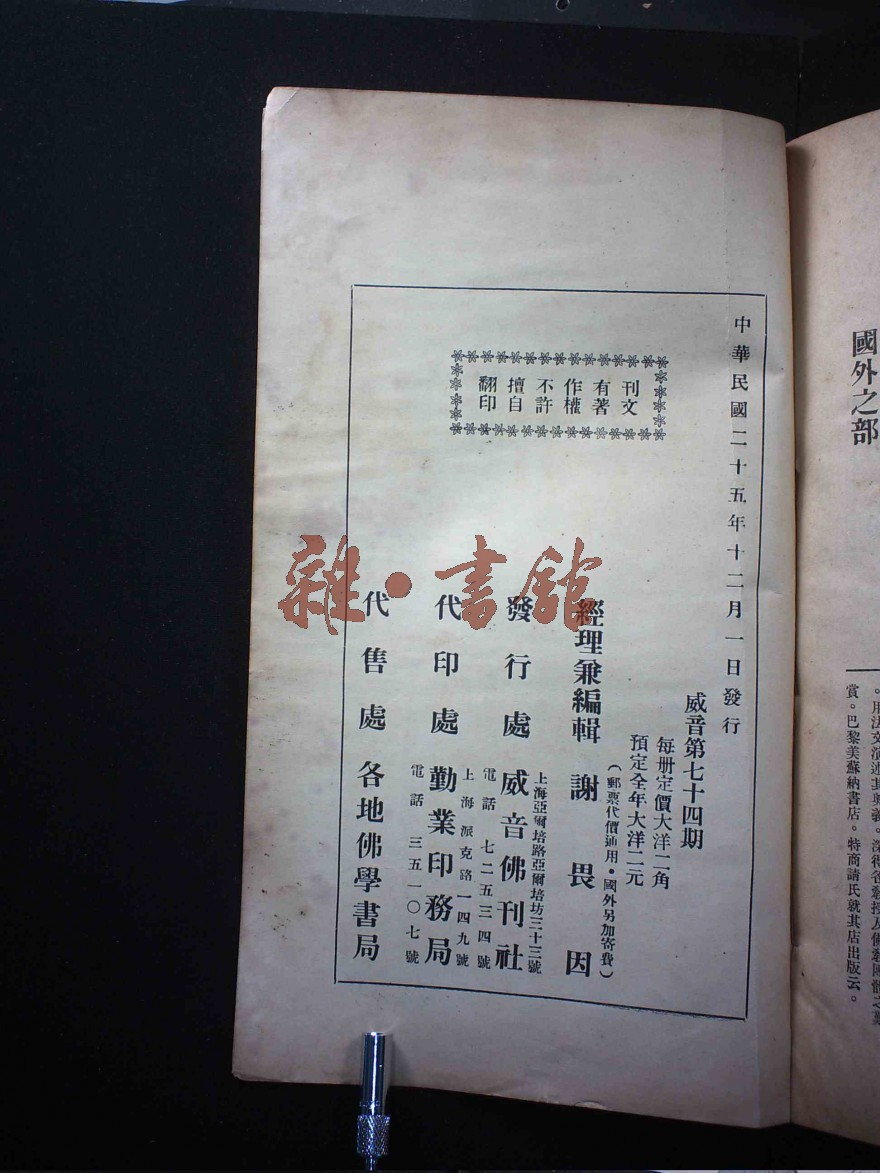 國外之部
賞。巴黎美蘇納書店。特商請氏就其店出版云。
中華民國二十五年十二月一日發行
刊文
有著
作權
不許
擅自
翻印
威音第七十四期
每册定價大洋二角
預定全年大洋二元
(郵票代價通用·國外另加寄費)
經理兼編輯 謝畏因
上海亞爾培路亞爾培坊三十三號
發行處 威音佛刊社
電話 七二五三四號
上海派克路一四九號
代印處 勤業印務局
電話 三五一〇七號
代售處 各地佛學書局
雜·書館